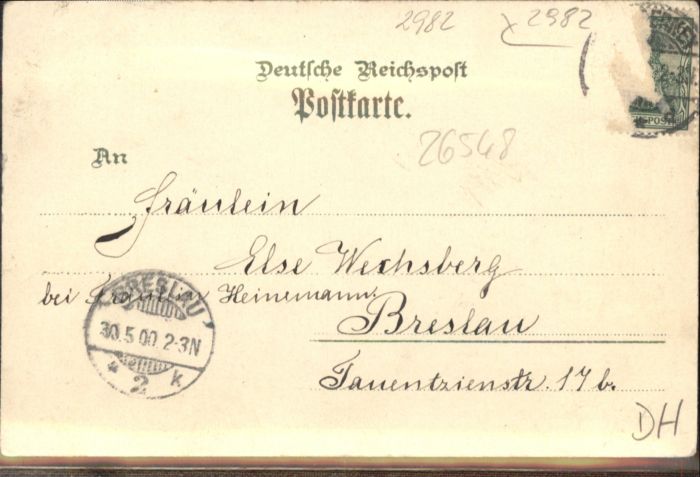 2982
2982
Deutsche Reichspost
Postkarte.
26548
An
Fräulein
Else Wechsberg
bei Fräulein Heinemann.
Breslau
Tauentzienstr. 17 b.
BRESLAU
30.5.00.2-3N
* 2 k
DH